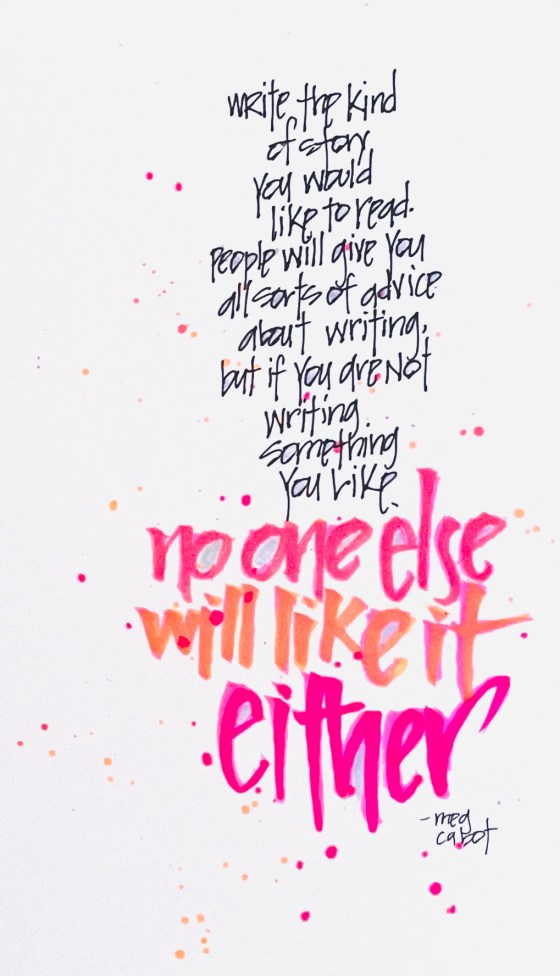 write the kind
of story
you would
like to read.
People will give you
all sorts of advice
about writing,
but if you are Not
writing
something
you Like,
no one else
will like it
either
-meg
cabot